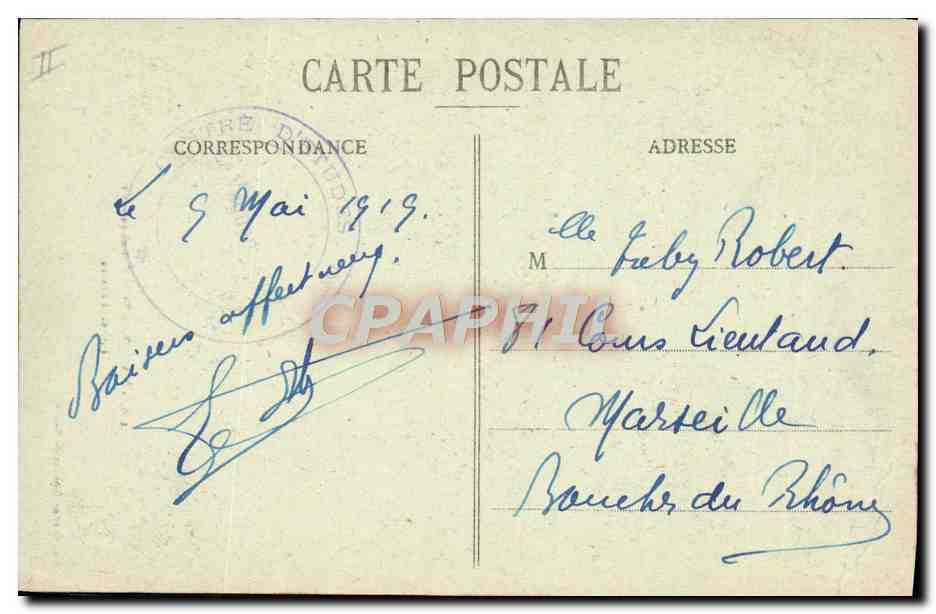 II
CARTE POSTALE
CORRESPONDANCE
CENTRE D'ETUDES
Le 9 Mai 1919.
Baisers affectueux.
ADRESSE
Mlle Gaby Robert.
81 Cours Lieutaud.
Marseille
Bouches du Rhône
CPAPHIL